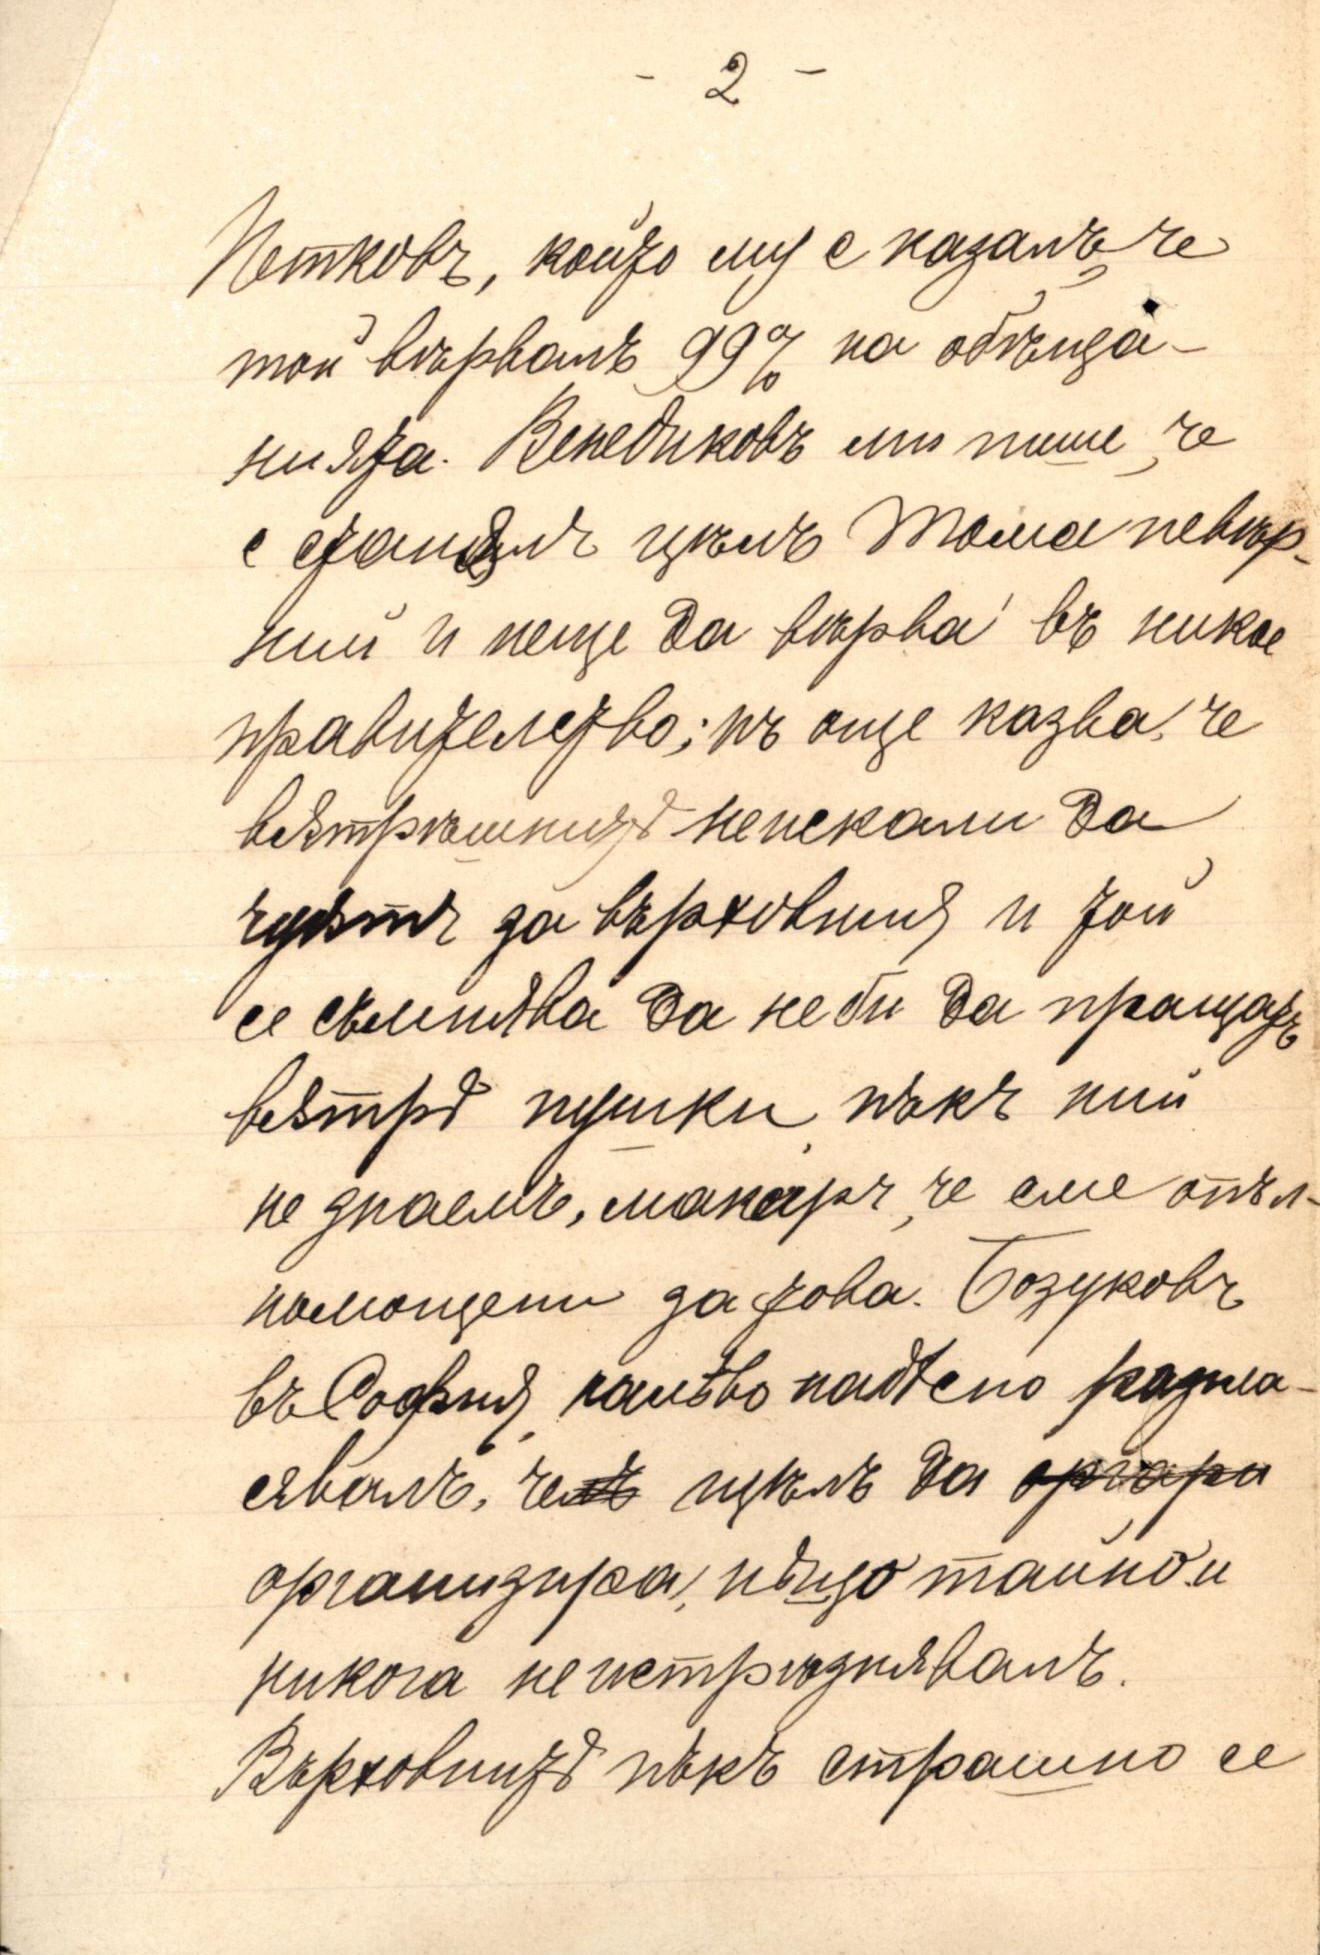 - 2 -
Петковъ, който му е казалъ, че
той вѣрвалъ 99% на обѣща-
нията. Венедиковъ ми пише, че
е станѫлъ цѣлъ Тома невѣр-
ний и неще да вѣрва въ никое
правителство; пъ още казва, че
вѫтрѣшнитѣ неискали да
чуѭтъ за върховния и той
се съмнява да не би да пращатъ
вѫтрѣ пушки, пъкъ ний
не знаемъ, макаръ, че сме опъл-
номощени за това. Бозуковъ
въ София, налѣво надѣсно разгла-
сявалъ, че цѣлъ да
организира, нѣщо тайно и
никога неистрѣзнявалъ.
Върховнитѣ пъкъ страшно се